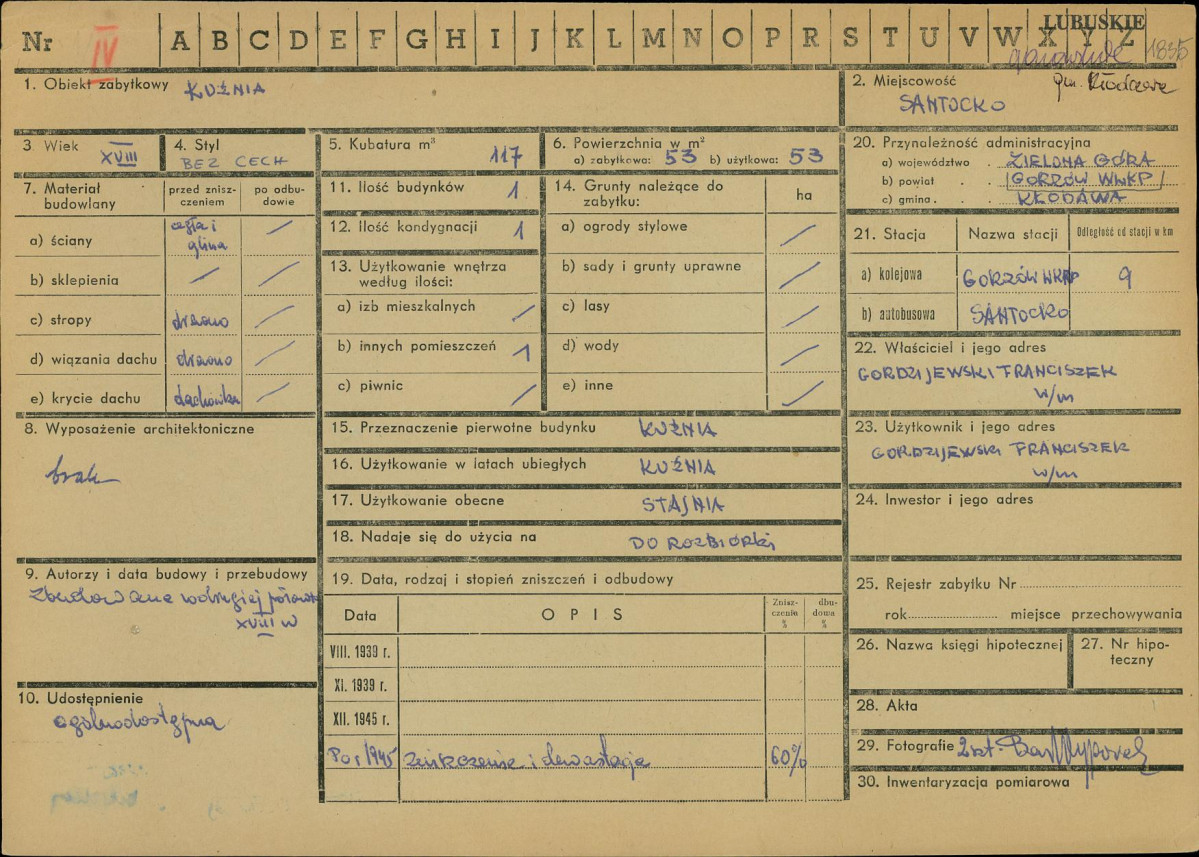 Nr IV A B C D E F G H I J K L M N O P R S T U V W X Y Z
LUBUSKIE
1835
1. Obiekt zabytkowy KUŹNIA
2. Miejscowość gm. Kłodawa
SANTOCKO
3 Wiek XVIII
4. Styl BEZ CECH
5. Kubatura m³ 117
6. Powierzchnia w m²
a) zabytkowa: 53 b) użytkowa: 53
7. Materiał budowlany
przed zniszczeniem
po odbudowie
a) ściany cegła i glina /
b) sklepienia / /
c) stropy drewno /
d) wiązania dachu drewno /
e) krycie dachu dachówka /
8. Wyposażenie architektoniczne
brak
9. Autorzy i data budowy i przebudowy
Zbudowana w drugiej połowie
XVIII w
10. Udostępnienie
ogólnodostępna
11. Ilość budynków 1
12. Ilość kondygnacji 1
13. Użytkowanie wnętrza
według ilości:
a) izb mieszkalnych /
b) innych pomieszczeń 1
c) piwnic /
14. Grunty należące do
zabytku:
ha
a) ogrody stylowe /
b) sady i grunty uprawne /
c) lasy /
d) wody /
e) inne /
15. Przeznaczenie pierwotne budynku KUŹNIA
16. Użytkowanie w latach ubiegłych KUŹNIA
17. Użytkowanie obecne STAJNIA
18. Nadaje się do użycia na DO ROZBIÓRKI
19. Data, rodzaj i stopień zniszczeń i odbudowy
Data OPIS Zniszczenia % dbudowa %
VIII. 1939 r.
XI. 1939 r.
XII. 1945 r.
Po r 1945 zniszczenie i dewastacja 60%
20. Przynależność administracyjna
a) województwo . ZIELONA GÓRA
b) powiat . . GORZÓW WLKP
c) gmina . . KŁODAWA
21. Stacja Nazwa stacji Odległość od stacji w km
a) kolejowa GORZÓW WLKP 9
b) autobusowa SANTOCKO
22. Właściciel i jego adres
GORDZIJEWSKI FRANCISZEK
w/m
23. Użytkownik i jego adres
GORDZIJEWSKI FRANCISZEK
w/m
24. Inwestor i jego adres
25. Rejestr zabytku Nr
rok miejsce przechowywania
26. Nazwa księgi hipotecznej
27. Nr hipoteczny
28. Akta
29. Fotografie 2 szt.
30. Inwentaryzacja pomiarowa